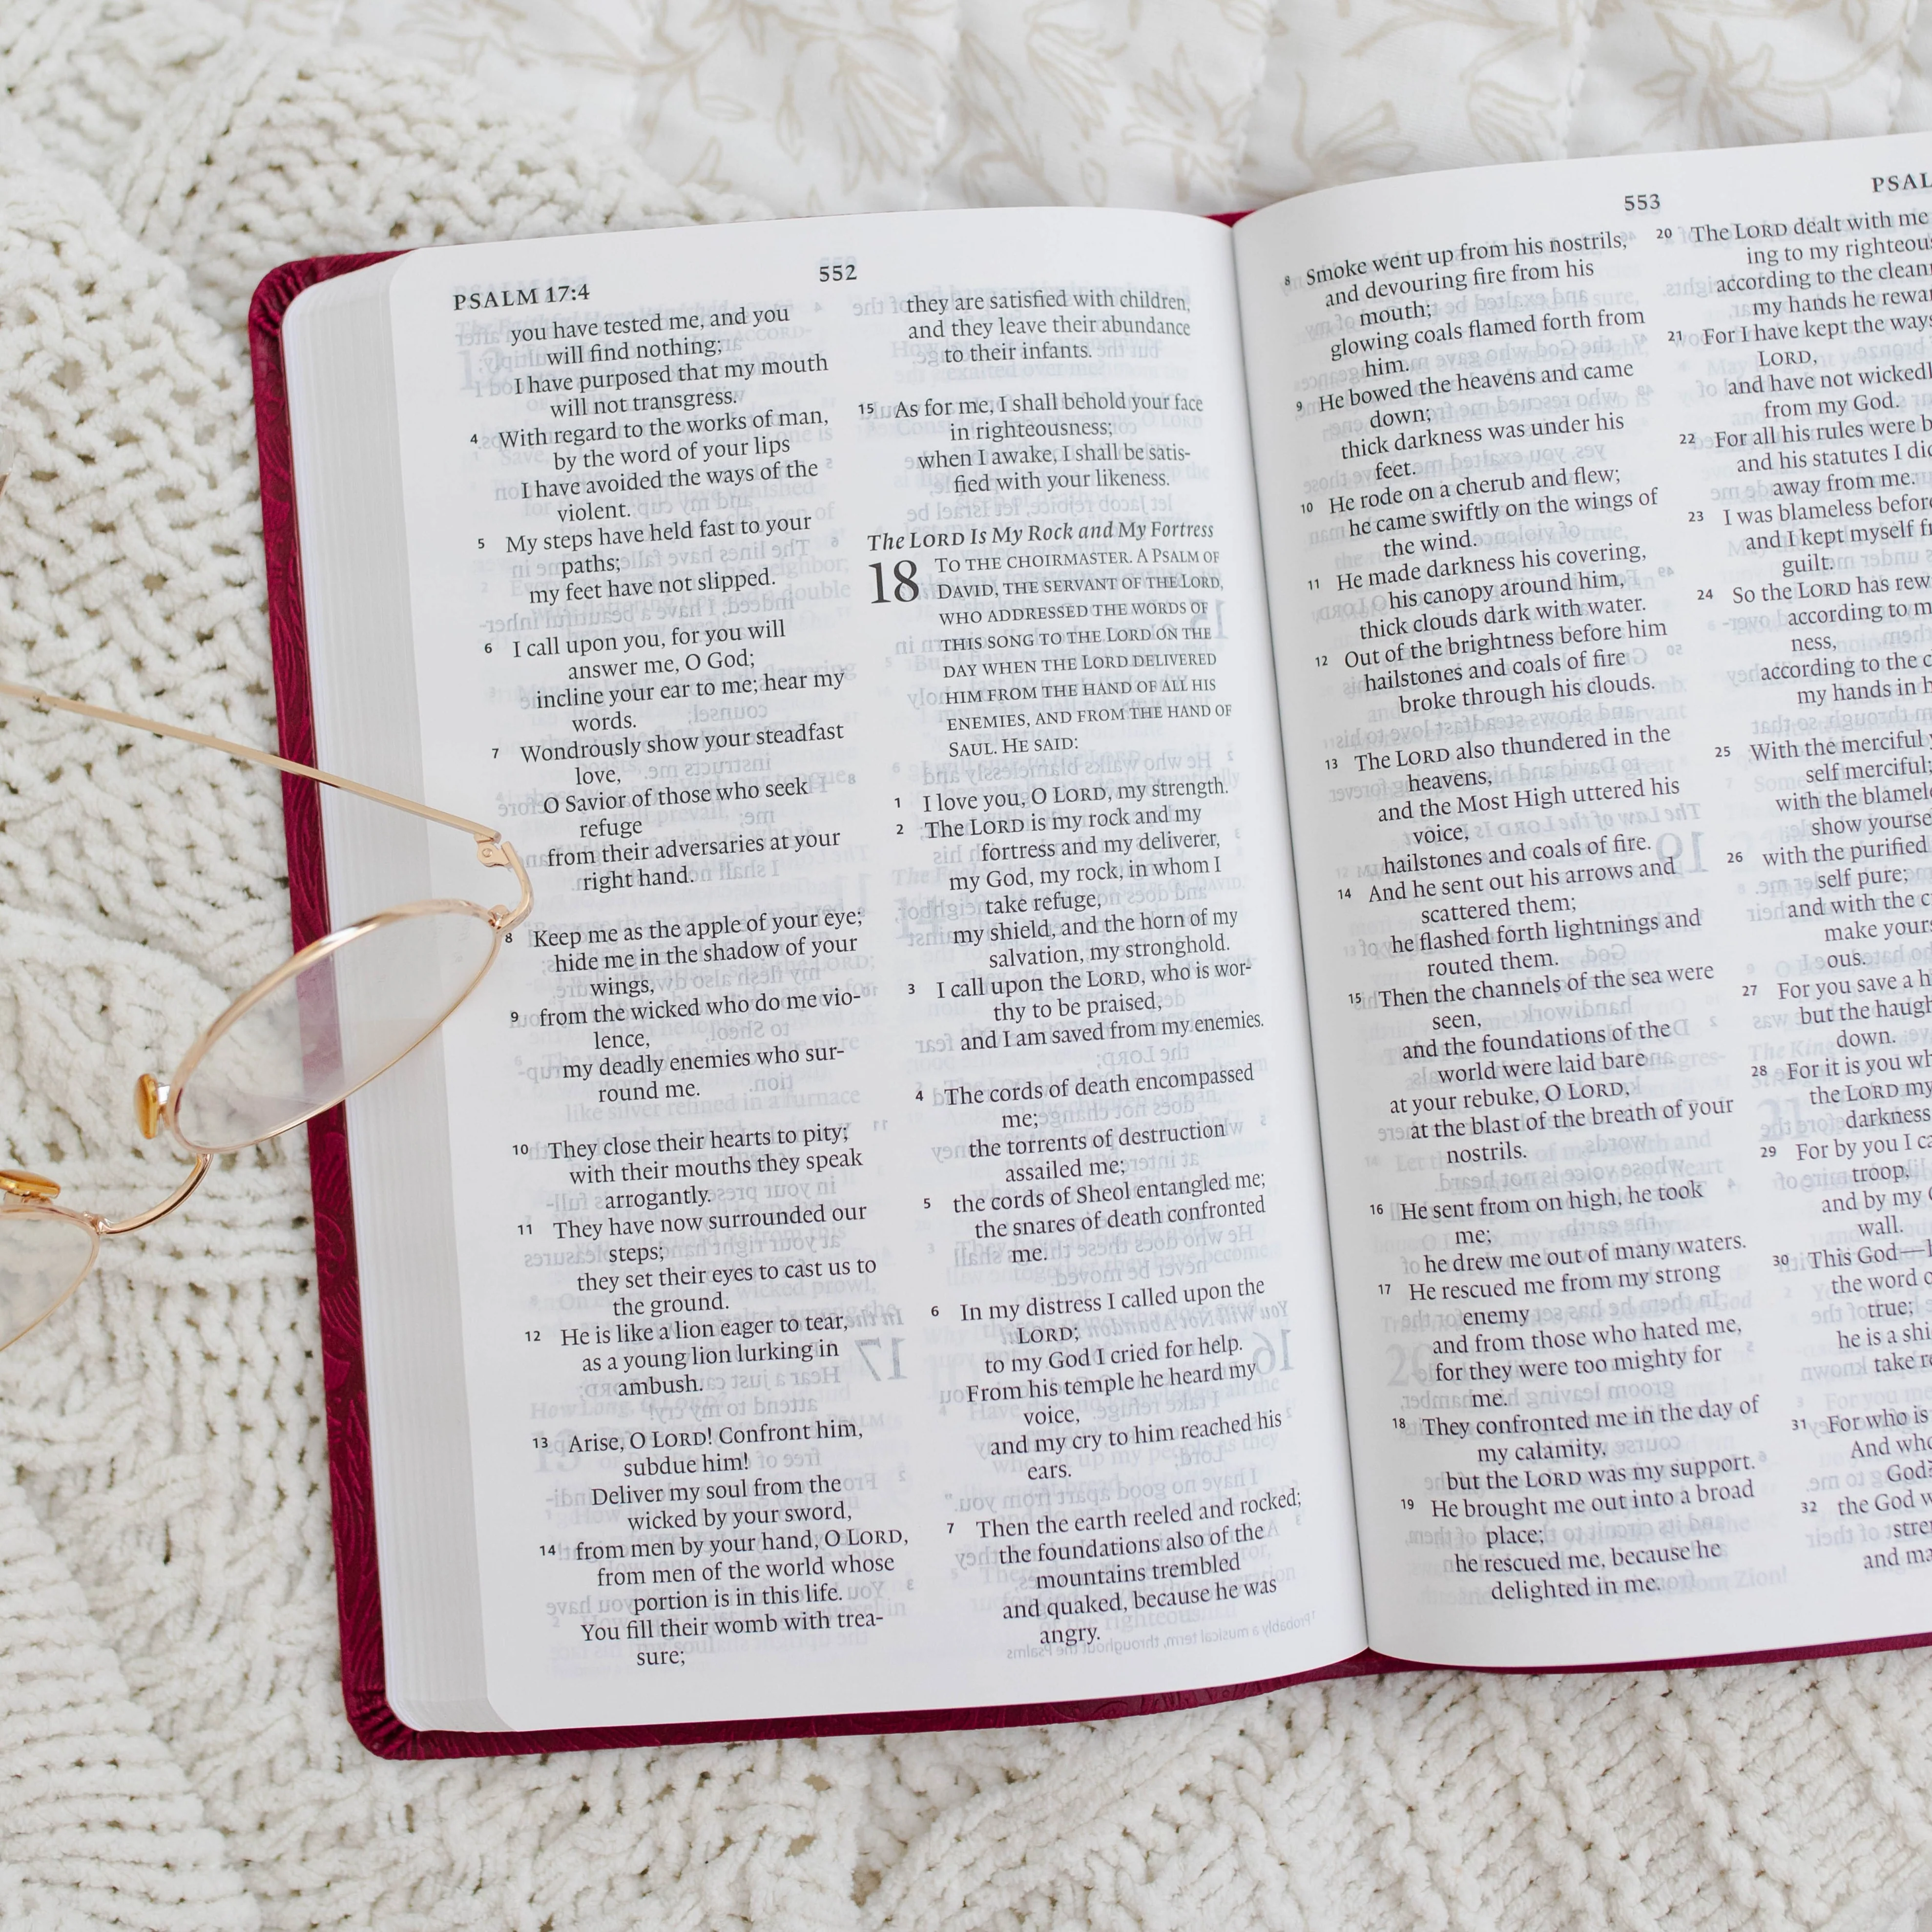 PSALM 17:4
552
you have tested me, and you
will find nothing;
I have purposed that my mouth
will not transgress.
4 With regard to the works of man,
by the word of your lips
I have avoided the ways of the
violent.
5 My steps have held fast to your
paths;
my feet have not slipped.
6 I call upon you, for you will
answer me, O God;
incline your ear to me; hear my
words.
7 Wondrously show your steadfast
love,
O Savior of those who seek
refuge
from their adversaries at your
right hand.
8 Keep me as the apple of your eye;
hide me in the shadow of your
wings,
9 from the wicked who do me vio-
lence,
my deadly enemies who sur-
round me.
10 They close their hearts to pity;
with their mouths they speak
arrogantly.
11 They have now surrounded our
steps;
they set their eyes to cast us to
the ground.
12 He is like a lion eager to tear,
as a young lion lurking in
ambush.
13 Arise, O LORD! Confront him,
subdue him!
Deliver my soul from the
wicked by your sword,
14 from men by your hand, O LORD,
from men of the world whose
portion is in this life.
You fill their womb with trea-
sure;
they are satisfied with children,
and they leave their abundance
to their infants.
15 As for me, I shall behold your face
in righteousness;
when I awake, I shall be satis-
fied with your likeness.
The LORD Is My Rock and My Fortress
18 TO THE CHOIRMASTER. A PSALM OF
DAVID, THE SERVANT OF THE LORD,
WHO ADDRESSED THE WORDS OF
THIS SONG TO THE LORD ON THE
DAY WHEN THE LORD DELIVERED
HIM FROM THE HAND OF ALL HIS
ENEMIES, AND FROM THE HAND OF
SAUL. HE SAID:
1 I love you, O LORD, my strength.
2 The LORD is my rock and my
fortress and my deliverer,
my God, my rock, in whom I
take refuge,
my shield, and the horn of my
salvation, my stronghold.
3 I call upon the LORD, who is wor-
thy to be praised,
and I am saved from my enemies.
4 The cords of death encompassed
me;
the torrents of destruction
assailed me;
5 the cords of Sheol entangled me;
the snares of death confronted
me.
6 In my distress I called upon the
LORD;
to my God I cried for help.
From his temple he heard my
voice,
and my cry to him reached his
ears.
7 Then the earth reeled and rocked;
the foundations also of the
mountains trembled
and quaked, because he was
angry.
553
PSAL
8 Smoke went up from his nostrils,
and devouring fire from his
mouth;
glowing coals flamed forth from
him.
9 He bowed the heavens and came
down;
thick darkness was under his
feet.
10 He rode on a cherub and flew;
he came swiftly on the wings of
the wind.
11 He made darkness his covering,
his canopy around him,
thick clouds dark with water.
12 Out of the brightness before him
hailstones and coals of fire
broke through his clouds.
13 The LORD also thundered in the
heavens,
and the Most High uttered his
voice,
hailstones and coals of fire.
14 And he sent out his arrows and
scattered them;
he flashed forth lightnings and
routed them.
15 Then the channels of the sea were
seen,
and the foundations of the
world were laid bare
at your rebuke, O LORD,
at the blast of the breath of your
nostrils.
16 He sent from on high, he took
me;
he drew me out of many waters.
17 He rescued me from my strong
enemy
and from those who hated me,
for they were too mighty for
me.
18 They confronted me in the day of
my calamity,
but the LORD was my support.
19 He brought me out into a broad
place;
he rescued me, because he
delighted in me.
20 The LORD dealt with me
ing to my righteou
according to the clean
my hands he rewa
21 For I have kept the ways
LORD,
and have not wickedl
from my God.
22 For all his rules were b
and his statutes I did
away from me.
23 I was blameless before
and I kept myself fr
guilt.
24 So the LORD has rew
according to m
ness,
according to the c
my hands in h
25 With the merciful
self merciful;
with the blamele
show yourse
26 with the purified
self pure;
and with the c
make your
ous.
27 For you save a h
but the haugh
down.
28 For it is you wh
the LORD my
darkness
29 For by you I ca
troop,
and by my
wall.
30 This God—
the word o
true;
he is a shi
take re
31 For who is
And who
God?
32 the God w
stren
and ma